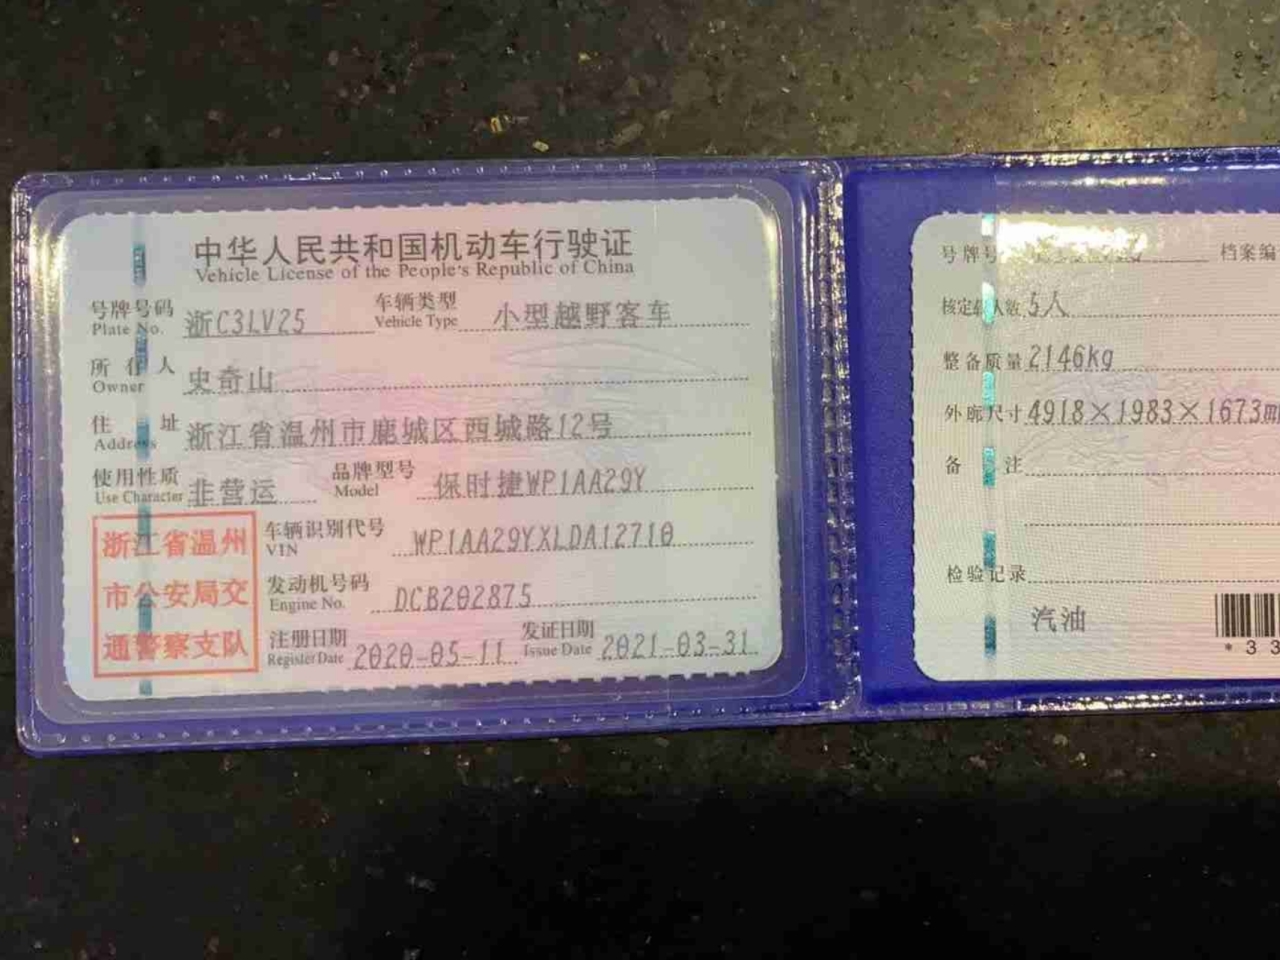 中华人民共和国机动车行驶证
Vehicle License of the People's Republic of China
号牌号码 浙C3LV25 车辆类型 小型越野客车
Plate No. Vehicle Type
所有人 史奇山
Owner
住址 浙江省温州市鹿城区西城路12号
Address
使用性质 非营运 品牌型号 保时捷WP1AA29Y
Use Character Model
浙江省温州
市公安局交
通警察支队
车辆识别代号 WP1AA29YXLDA12710
VIN
发动机号码 DCB202875
Engine No.
注册日期 2020-05-11 发证日期 2021-03-31
Register Date Issue Date
号牌号 档案编
核定载人数 5人
整备质量 2146kg
外廓尺寸 4918×1983×1673m
备注
检验记录
汽油
*33